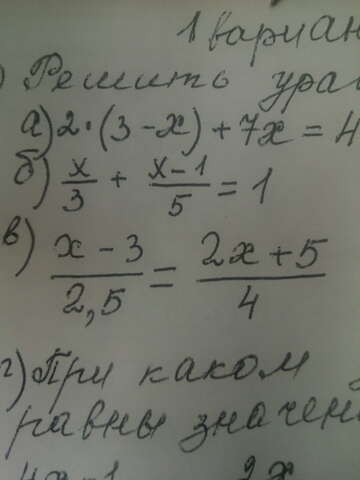 1 вариан
) Решить урав
а) 2·(3-x)+7x=4
б) x/3 + x-1/5 = 1
в) x-3/2,5 = 2x+5/4
г) При каком
равны значен
4x-1 2x